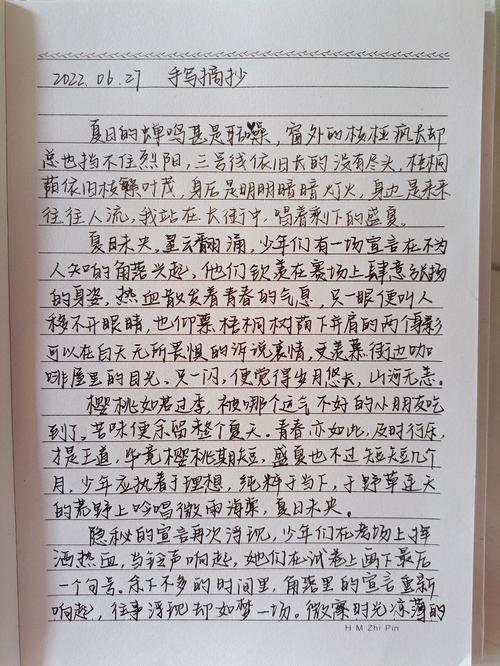 2022.06.27 手写摘抄
夏日的蝉鸣甚是聒噪，窗外的枝桠疯长却
总也挡不住烈阳，三号线依旧长的没有尽头，梧桐
荫依旧枝繁叶茂，身后是明明暗暗灯火，身边是来来
往往人流，我站在长街中，唱着剩下的盛夏。
夏日未央，星云翻涌，少年们有一场宣言在不为
人知的角落兴起，他们钦羡在赛场上肆意张扬
的身姿，热血散发着青春的气息，只一眼便叫人
移不开眼睛，也仰慕梧桐树荫下并肩的两个身影
可以在白天无所畏惧的诉说衷情，更羡慕街边咖
啡屋里的目光，只一闪，便觉得岁月悠长，山河无恙。
樱桃如若过季，被哪个运气不好的小朋友吃
到了，苦味便余留整个夏天。青春亦如此，及时行乐，
才是王道，毕竟樱桃期短，盛夏也不过短短几个
月，少年应执着于理想，纯粹于当下，于野草连天
的荒野上吟唱微雨海棠，夏日未央。
隐秘的宣言再次浮现，少年们在考场上挥
洒热血，当铃声响起，她们在试卷上画下最后
一个句号。余下不多的时间里，角落里的宣言重新
响起，往事浮现却如梦一场。微寡时光凉薄的
H M Zhi Pin